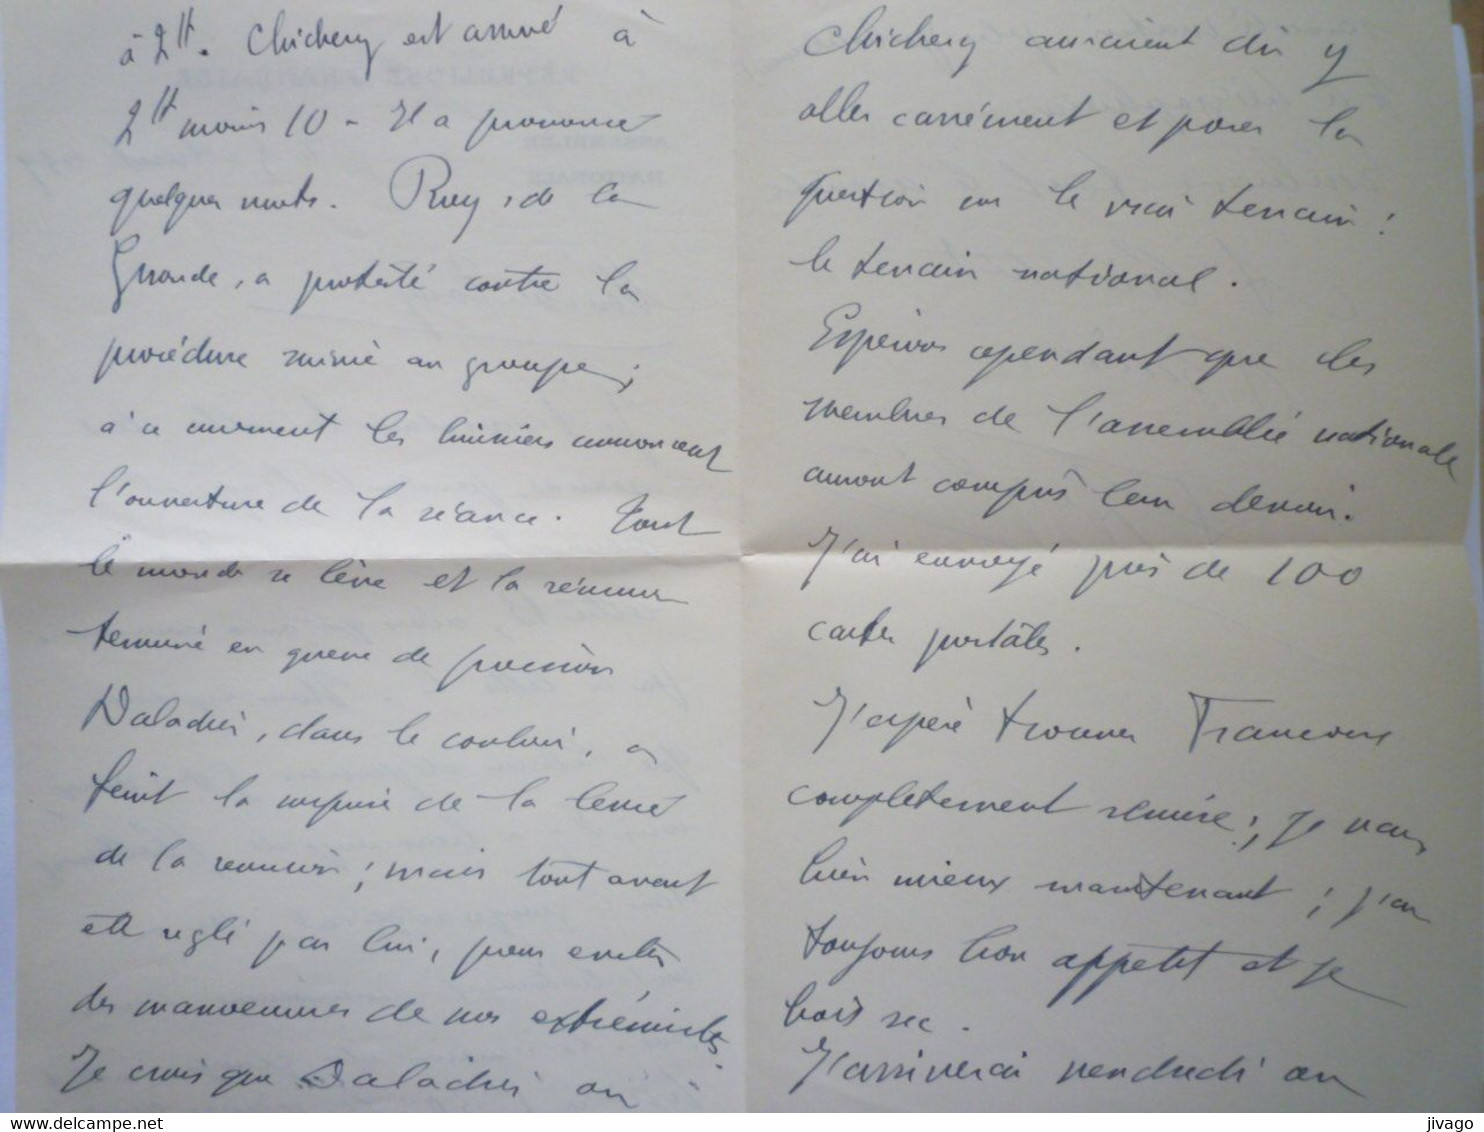 à 2H. Chichery est arrivé à
2H moins 10 - Il a prononcé
quelques mots. Roy, de la
Gironde, a protesté contre la
procédure suivie au groupe ;
à ce moment les huissiers annoncent
l'ouverture de la séance. Tout
le monde se lève et la réunion
terminé en queue de poisson
Daladier, dans le couloir, a
feint la surprise de la levée
de la réunion ; mais tout avait
été réglé par lui, pour éviter
des manoeuvres de nos extrémistes.
Je crois que Daladier ou
Chichery auraient dû y
aller carrément et poser la
question sur le vrai terrain :
le terrain national.
Espérons cependant que les
membres de l'assemblée nationale
auront compris leur devoir.
J'ai envoyé près de 100
cartes postales.
J'espère trouver Francoux
complètement remise ; Je vais
bien mieux maintenant ; j'ai
toujours bon appétit et je
bois sec.
J'arriverai vendredi au
delcampe.net
jivago